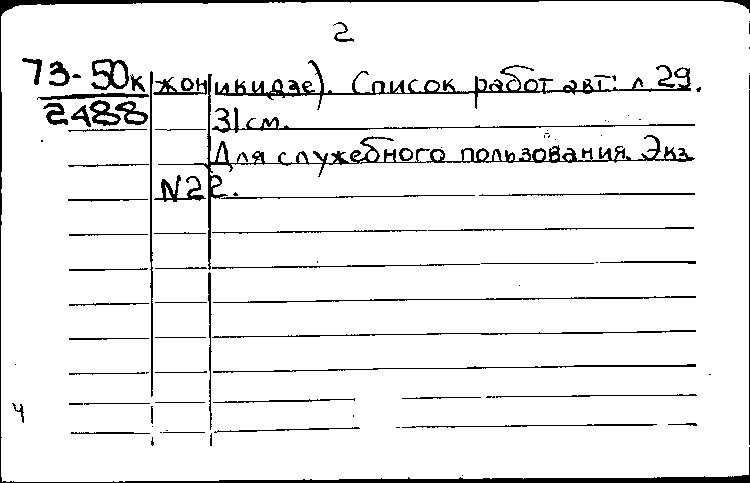 2
73-50к жоникидзе). Список работ авт: л. 29.
2488 31 см.
Для служебного пользования. Экз
N22.
ч